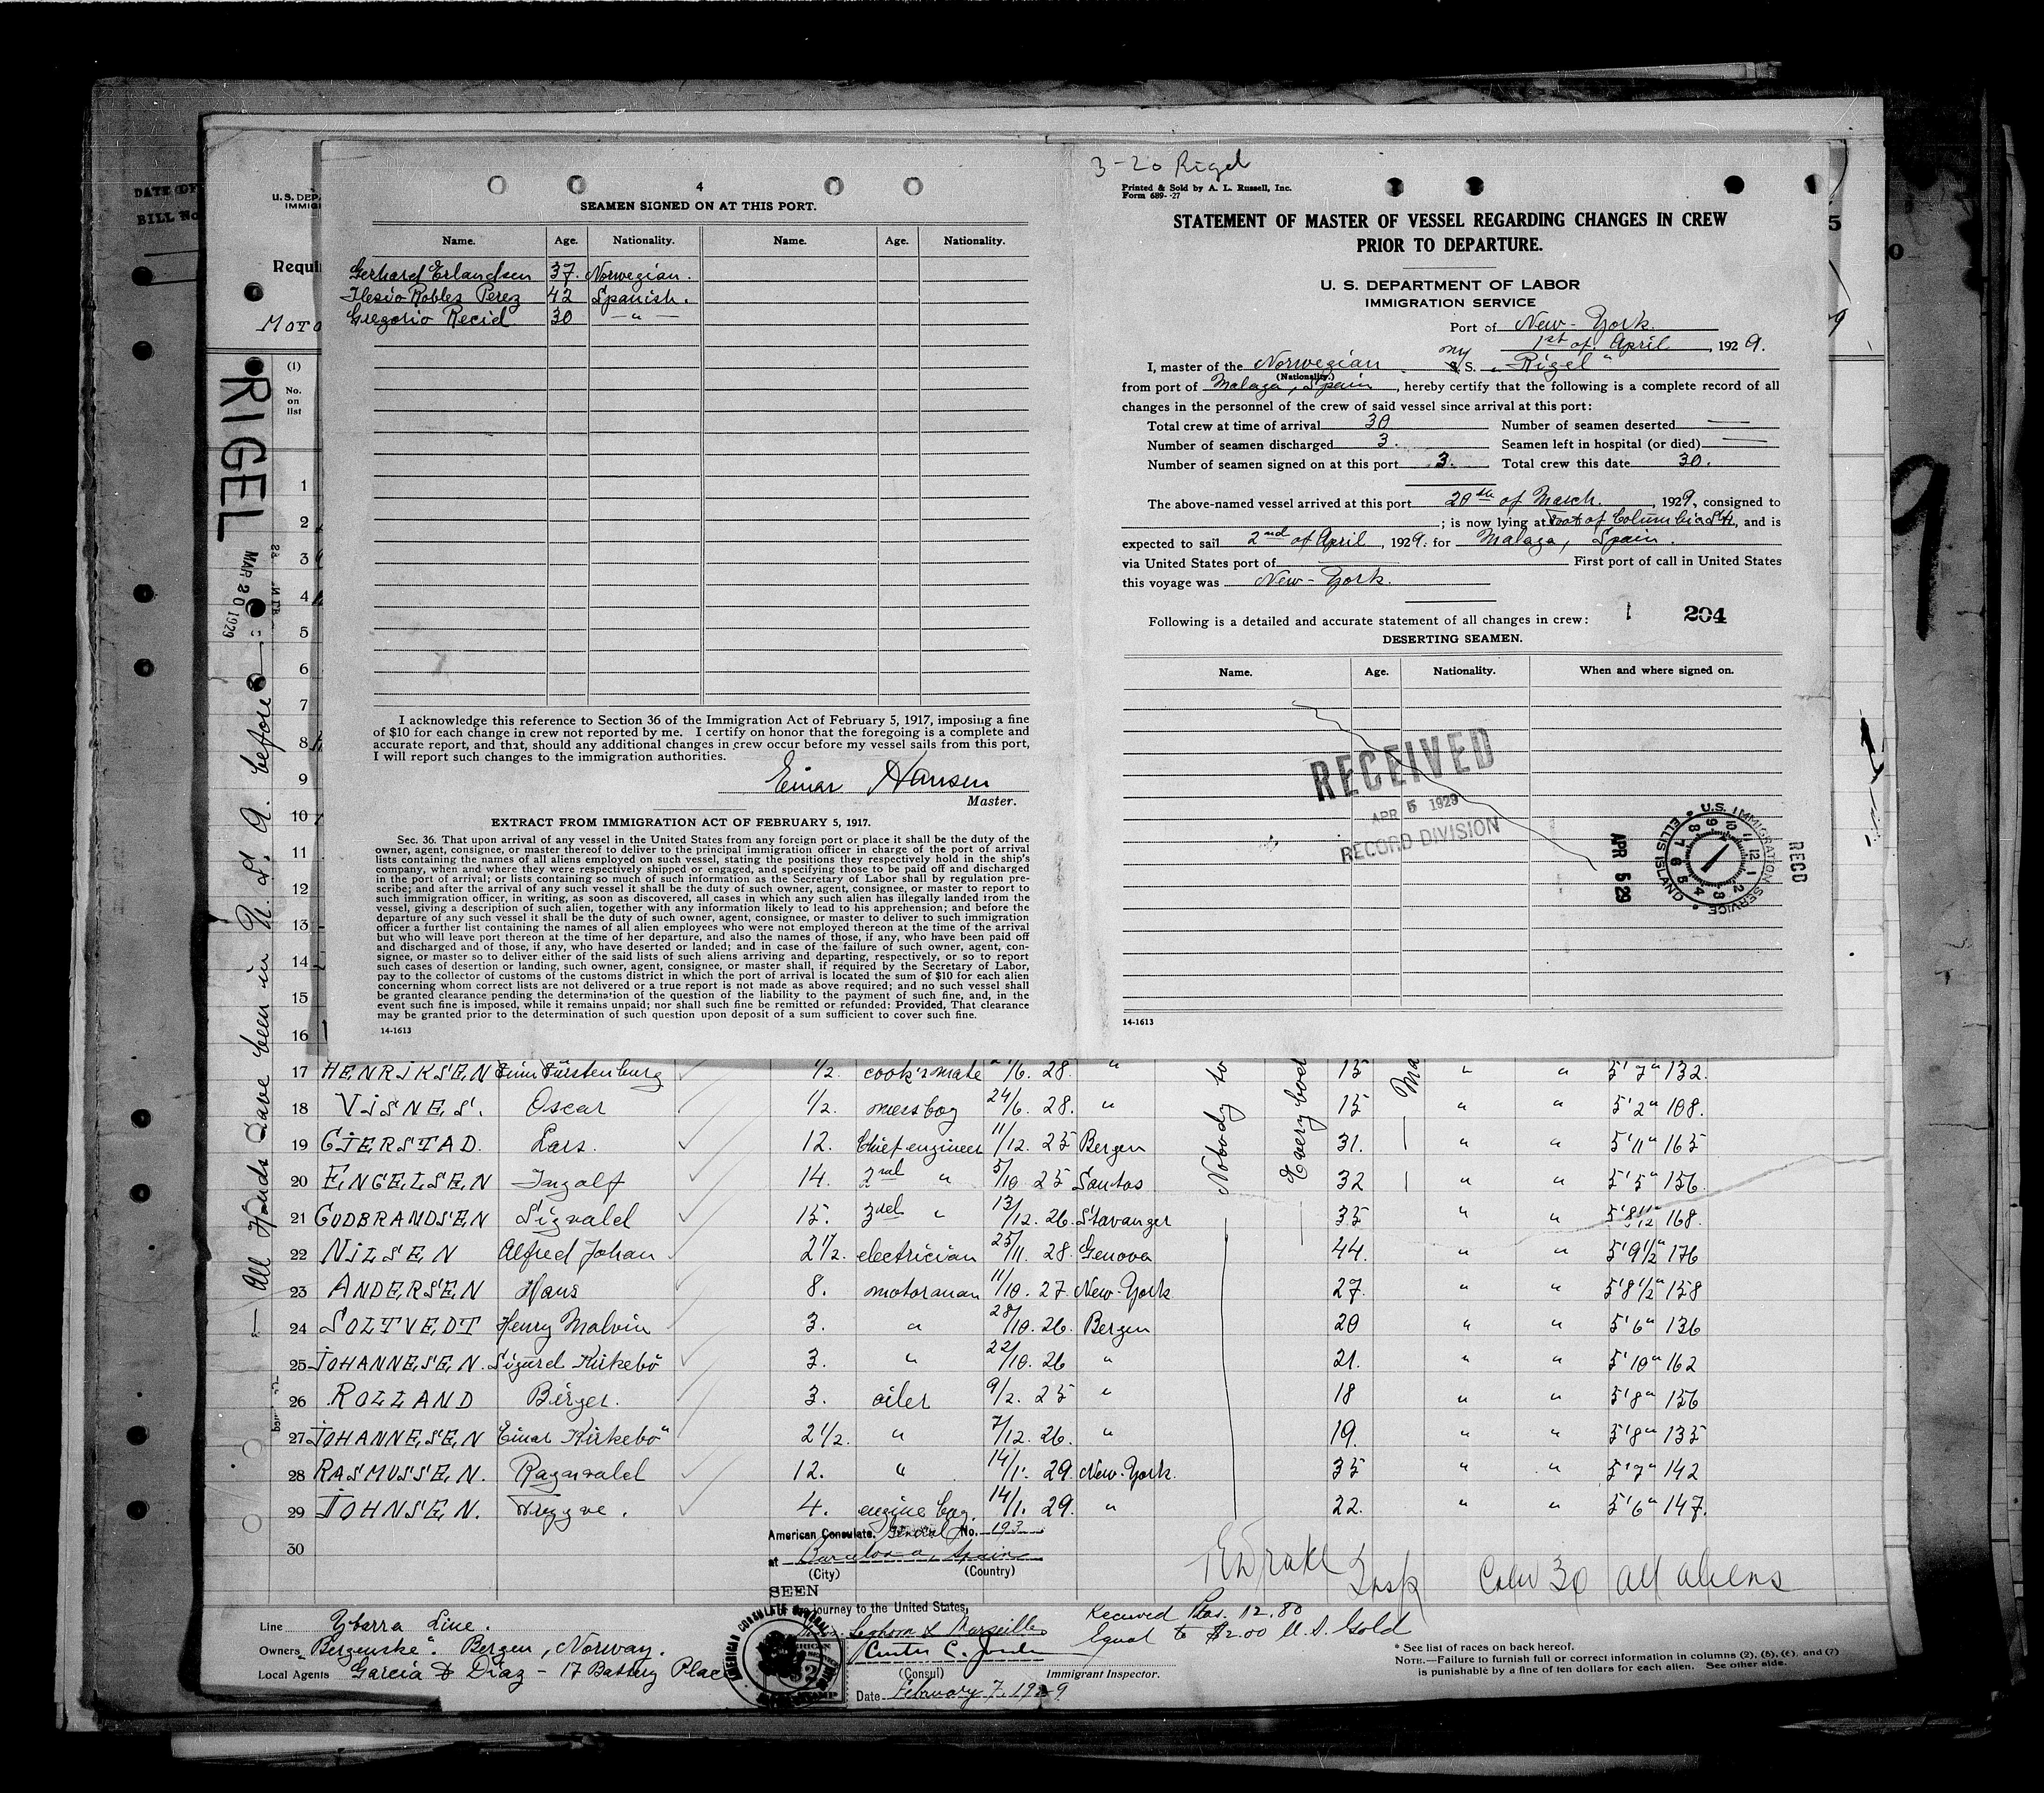 4
SEAMEN SIGNED ON AT THIS PORT.
Name. Age. Nationality. Name. Age. Nationality.
Gerhard Erlandsen 37. Norwegian.
Robles Perez 42 Spanish.
Gregorio Recid 30 — " —
I acknowledge this reference to Section 36 of the Immigration Act of February 5, 1917, imposing a fine
of $10 for each change in crew not reported by me. I certify on honor that the foregoing is a complete and
accurate report, and that, should any additional changes in crew occur before my vessel sails from this port,
I will report such changes to the immigration authorities.
Einar Hansen
Master.
EXTRACT FROM IMMIGRATION ACT OF FEBRUARY 5, 1917.
Sec. 36. That upon arrival of any vessel in the United States from any foreign port or place it shall be the duty of the
owner, agent, consignee, or master thereof to deliver to the principal immigration officer in charge of the port of arrival
lists containing the names of all aliens employed on such vessel, stating the positions they respectively hold in the ship's
company, when and where they were respectively shipped or engaged, and specifying those to be paid off and discharged
in the port of arrival; or lists containing so much of such information as the Secretary of Labor shall by regulation pre-
scribe; and after the arrival of any such vessel it shall be the duty of such owner, agent, consignee, or master to report to
such immigration officer, in writing, as soon as discovered, all cases in which any such alien has illegally landed from the
vessel, giving a description of such alien, together with any information likely to lead to his apprehension; and before the
departure of any such vessel it shall be the duty of such owner, agent, consignee, or master to deliver to such immigration
officer a further list containing the names of all alien employees who were not employed thereon at the time of the arrival
but who will leave port thereon at the time of her departure, and also the names of those, if any, who have been paid off
and discharged and of those, if any, who have deserted or landed; and in case of the failure of such owner, agent, con-
signee, or master so to deliver either of the said lists of such aliens arriving and departing, respectively, or so to report
such cases of desertion or landing, such owner, agent, consignee, or master shall, if required by the Secretary of Labor,
pay to the collector of customs of the customs district in which the port of arrival is located the sum of $10 for each alien
concerning whom correct lists are not delivered or a true report is not made as above required; and no such vessel shall
be granted clearance pending the determination of the question of the liability to the payment of such fine, and, in the
event such fine is imposed, while it remains unpaid; nor shall such fine be remitted or refunded: Provided, That clearance
may be granted prior to the determination of such question upon deposit of a sum sufficient to cover such fine.
14-1613
3-20 Rigel
Printed & Sold by A. L. Russell, Inc.
Form 689--27
STATEMENT OF MASTER OF VESSEL REGARDING CHANGES IN CREW
PRIOR TO DEPARTURE.
U. S. DEPARTMENT OF LABOR
IMMIGRATION SERVICE
Port of New-York.
1st of April, 1929.
I, master of the Norwegian m/S. "Rigel"
(Nationality.)
from port of Malaga, Spain, hereby certify that the following is a complete record of all
changes in the personnel of the crew of said vessel since arrival at this port:
Total crew at time of arrival 30 Number of seamen deserted —
Number of seamen discharged 3. Seamen left in hospital (or died) —
Number of seamen signed on at this port 3. Total crew this date 30.
The above-named vessel arrived at this port 20th of March, 1929, consigned to
; is now lying at Foot of Columbia Str, and is
expected to sail 2nd of April, 1929. for Malaga, Spain.
via United States port of First port of call in United States
this voyage was New-York.
Following is a detailed and accurate statement of all changes in crew: 1 204
DESERTING SEAMEN.
Name. Age. Nationality. When and where signed on.
RECEIVED
APR 5 1929
RECORD DIVISION
U.S. IMMIGRATION SERVICE ELLIS ISLAND
APR 5 29
RECD
14-1613
DATE OF
BILL No
U. S. DEP
IMMIG
Requi
MOTO
(1)
No.
on
list
RIGEL
MAR 20 1929
— All Hands have been in N.Y. before —
1
2
3
4
5
6
7
8
9
10
11
12
13
14
15
16
17 HENRIKSEN Finn Fürstenburg 1/2. cook's mate /6. 28. " 15 " " 5'7" 132.
18 VISNES. Oscar 1/2. messboy 24/6. 28. " 15 " " 5'2" 108.
19 GJERSTAD. Lars. 12. Chief engineer 11/12. 25 Bergen 31. " " 5'11" 165
20 ENGELSEN Ingolf 14. 2nd " 5/10 25 Santos 32 " " 5'5" 156
21 GUDBRANDSEN Sigvald 15. 3rd " 13/12. 26. Stavanger 35 " " 5'8 1/2" 168.
22 NILSEN Alfred Johan 2 1/2. electrician 25/11. 28. Genova 44. " " 5'9 1/2" 176
23 ANDERSEN Hans 8. motorman 11/10. 27. New-York 27. " " 5'8 1/2" 158
24 SOLTVEDT Henry Malvin 3. " 28/10. 26. Bergen 20 " " 5'6" 136
25 JOHANNESEN. Sigurd Kirkebö 3. " 22/10. 26 " 21. " " 5'10" 162
26 ROLLAND Birger. 3. oiler 9/2. 25 " 18 " " 5'8" 156
27 JOHANNESEN Einar Kirkebö 2 1/2. " 7/12. 26. " 19. " " 5'8" 135
28 RASMUSSEN. Ragnvald 12. " 14/1. 29. New-York. 35 " " 5'7" 142
29 JOHNSEN. Trygve. 4. engine boy. 14/1. 29. " 22. " " 5'6" 147.
30
Nobody to
Everybod
Ma
American Consulate General No. 193
at Barcelona, Spain
(City) (Country)
SEEN
journey to the United States,
Leghorn & Marseilles
(Consul)
Date February 7, 1929
AMERICAN CONSULATE GENERAL
Drake Insp 30 all aliens
Received Ptas. 12.80
Equal to $2.00 U.S. Gold
Immigrant Inspector.
Line Ybarra Line.
Owners "Bergenske". Bergen, Norway.
Local Agents Garcia & Diaz - 17 Battery Place
* See list of races on back hereof.
NOTE.—Failure to furnish full or correct information in columns (2), (5), (6), and (7)
is punishable by a fine of ten dollars for each alien. See other side.